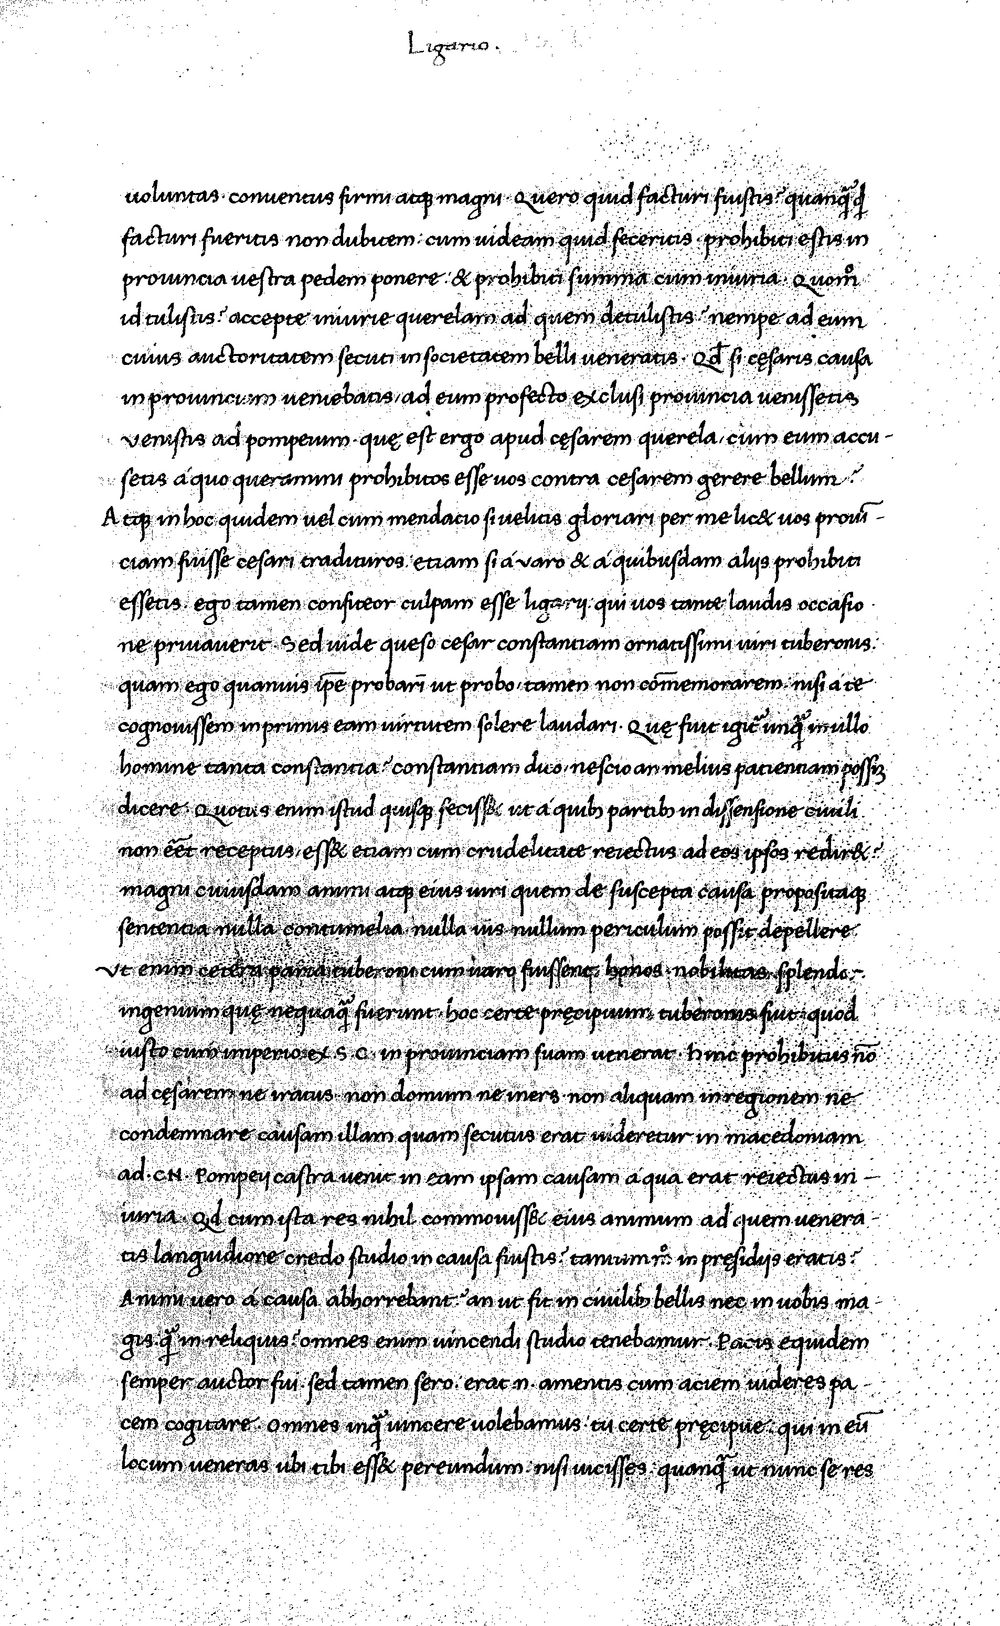 Ligario.
uoluntas. conuentus firmi atqꝫ magni. Quero quid facturi fuistis? quanq̃ q̃d
facturi fueritis non dubitem. cum uideam quid feceritis. prohibiti estis in
prouincia uestra pedem ponere. & prohibiti summa cum iniuria. Quom̊
id tulistis? accepte iniurie querelam ad quem detulistis? nempe ad eum
cuius auctoritatem secuti in societatem belli ueneratis. Qd̃ si cęsaris causa
in prouinciam ueniebatis, ad eum profecto exclusi prouincia uenissetis
Venistis ad pompeium. quę est ergo apud cęsarem querela, cum eum accu-
setis a quo queramini prohibitos esse uos contra cesarem gerere bellum?
Atqꝫ in hoc quidem uel cum mendacio si uelitis gloriari per me lic& uos prouī-
ciam fuisse cesari tradituros. etiam si a varo & a quibusdam aliis prohibiti
essetis. ego tamen confiteor culpam esse ligarij. qui uos tante laudis occasio
ne priuauerit. Sed uide queso cesar constantiam ornatissimi uiri tuberonis.
quam ego quamuis ip̄e probarī ut probo, tamen non cōmemorarem. nisi a te
cognouissem in primis eam uirtutem solere laudari. Quę fuit igit᷑ unq̃ in ullo
homine tanta constantia? constantiam dico, nescio an melius patientiam possiꝫ
dicere. Quotus enim istud quisqꝫ feciss&. ut a quibꝫ partibꝫ in dissensione ciuili
non eēt receptus, ess& etiam cum crudelitate reiectus ad eos ipsos redir&?
magni cuiusdam animi atqꝫ eius uiri quem de suscepta causa propositaqꝫ
sententia nulla contumelia. nulla uis. nullum periculum possit depellere.
Vt enim cetera paria tuberoni cum uaro fuissent. honos. nobilitas. splendor.
ingenium quę nequaq̃ fuerunt. hoc certe pręcipuum tuberonis fuit. quod
iusto cum imperio ex S. C. in prouinciam suam uenerat. hinc prohibitus nō
ad cęsarem ne iratus. non domum ne iners. non aliquam in regionem ne
condemnare causam illam quam secutus erat uideretur in macedoniam
ad. CN. Pompeij castra uenit in eam ipsam causam a qua erat reiectus in-
iuria. Qd̃ cum ista res nihil commouiss& eius animum ad quem uenera-
tis languidiore credo studio in causa fuistis? tantum m̊. in pręsidijs eratis?
Animi uero a causa abhorrebant? an ut fit in ciuilibꝫ bellis nec in uobis ma-
gis. q̃ in reliquis? omnes enim uincendi studio tenebamur. Pacis equidem
semper auctor fui. sed tamen sero. erat .n. amentis cum aciem uideres pa-
cem cogitare. Omnes inq̃ uincere uolebamus. tu certe pręcipue. qui in eū
locum ueneras ubi tibi ess& pereundum. nisi uicisses. quanq̃ ut nunc se res